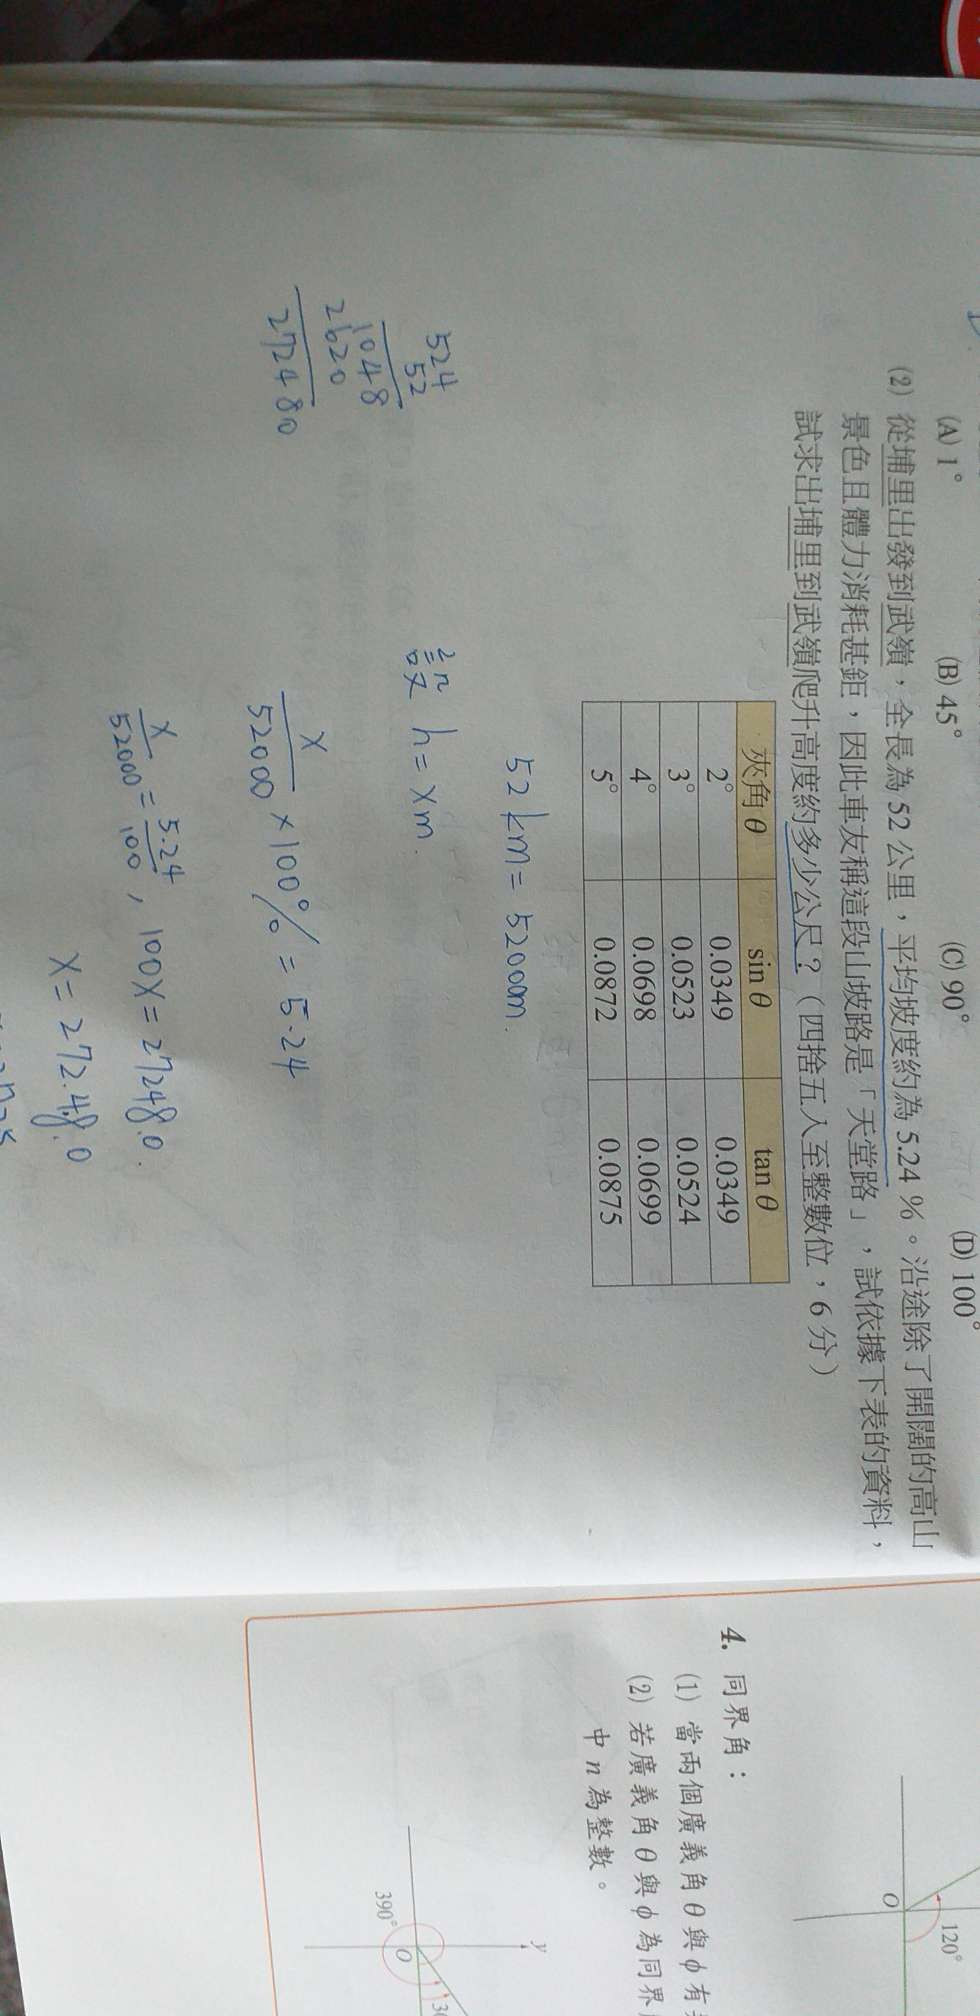 (A) 1° (B) 45° (C) 90° (D) 100°
(2) 從埔里出發到武嶺，全長為 52 公里，平均坡度約為 5.24 %。沿途除了開闊的高山
景色且體力消耗甚鉅，因此車友稱這段山坡路是「天堂路」，試依據下表的資料，
試求出埔里到武嶺爬升高度約多少公尺？（四捨五入至整數位，6 分）
夾角 θ sin θ tan θ
2° 0.0349 0.0349
3° 0.0523 0.0524
4° 0.0698 0.0699
5° 0.0872 0.0875
52 km = 52000m.
設 h = x m.
x/52000 × 100% = 5.24
x/52000 = 5.24/100, 100x = 27248.0.
x = 272.48.0
524
52
1048
2620
272480
4. 同界角：
(1) 當兩個廣義角 θ 與 ϕ 有
(2) 若廣義角 θ 與 ϕ 為同界
中 n 為整數。
O
120°
y
390°
O